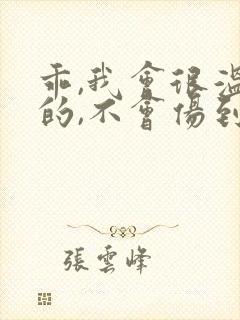 乖,我會很溫
的,不會傷到
張雲峰